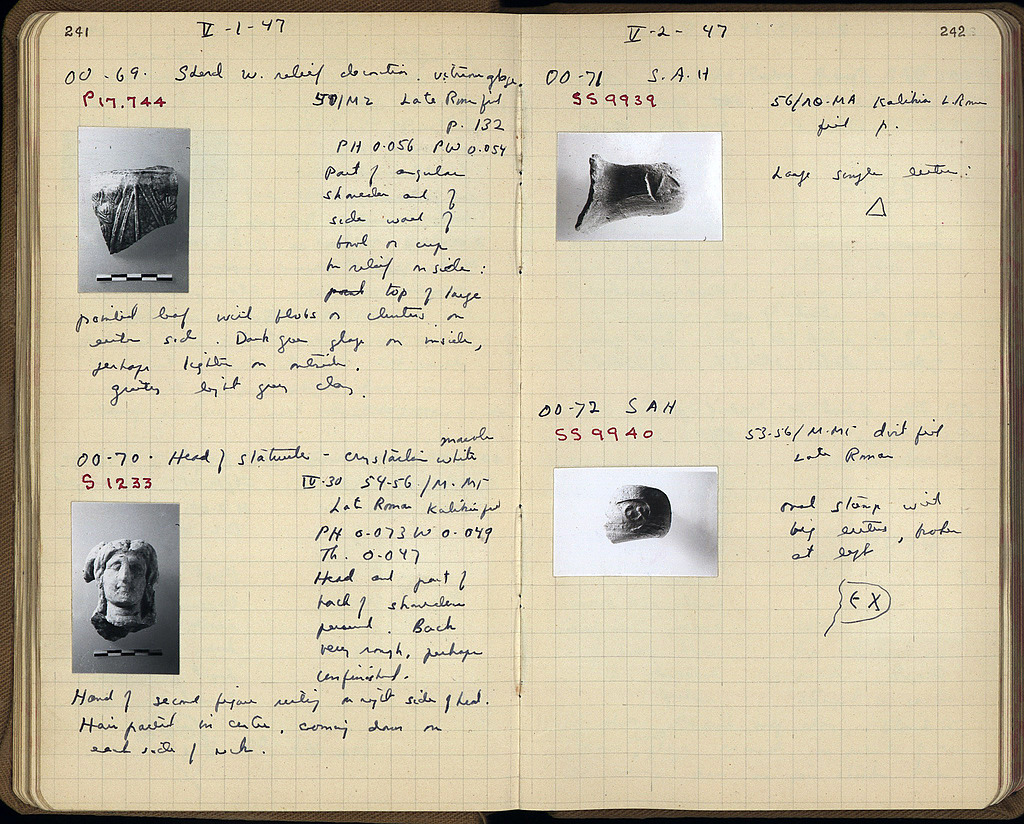 241
V-1-47
OO-69. Sherd w. relief decoration. vitreous glaze.
P 17.744
50/M2 Late Rom fill
p. 132
PH 0.056 PW 0.054
Part of angular
shoulder and of
side wall of
bowl or cup
In relief on side:
top of large
pointed leaf with blobs or clusters on
either side. Dark green glaze on inside,
perhaps lighter on outside.
Gritty light grey clay.
OO-70. Head of statuette - crystalline white
marble
S 1233
IV-30 54-56/M-MΓ
Late Roman Kalikia fill
PH 0.073 W 0.049
Th. 0.047
Head and part of
back of shoulders
preserved. Back
very rough, perhaps
unfinished.
Hand of second figure resting on right side of head.
Hair parted in centre, coming down on
each side of neck.
V-2-47
242
OO-71 S.A.H
SS 9939
56/ΛΘ-MA Kalikia L. Rom
fill p.
Large single letter:
Δ
OO-72 SAH
SS 9940
53-56/M-MΓ drit fill
Late Roman
oval stamp with
big letters, broken
at left
EX